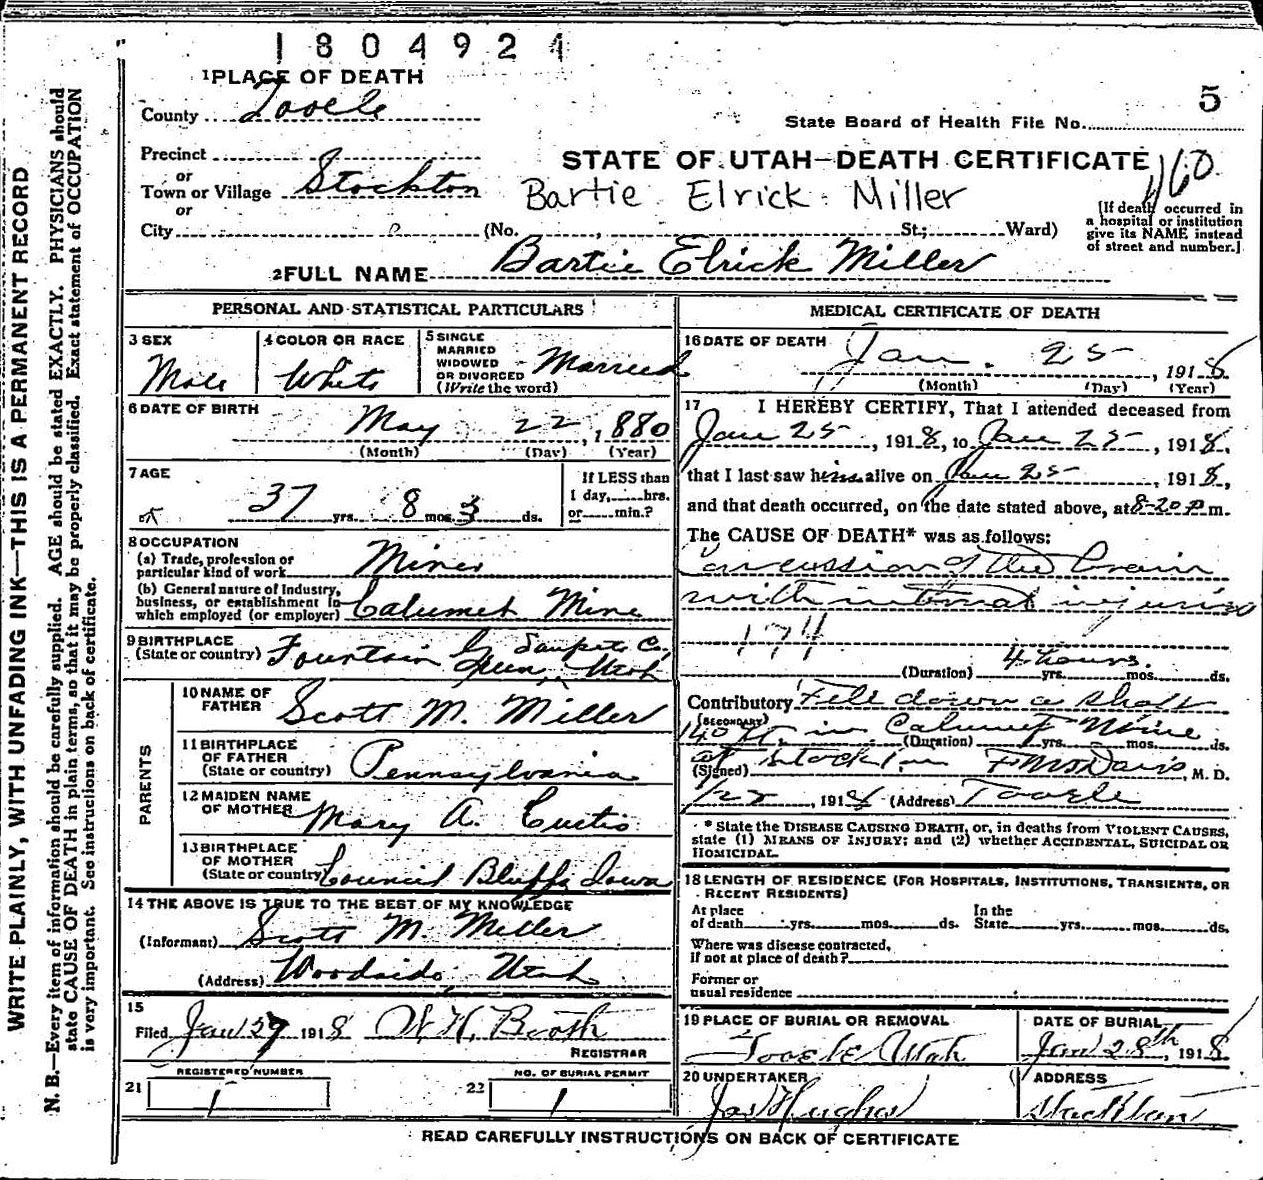 1804921
1 PLACE OF DEATH
County Tooele
5
State Board of Health File No.
Precinct
or
Town or Village Stockton
or
City (No. , St.; Ward)
STATE OF UTAH—DEATH CERTIFICATE
160
Bartie Elrick Miller
[If death occurred in
a hospital or institution
give its NAME instead
of street and number.]
2 FULL NAME Bartie Elrick Miller
PERSONAL AND STATISTICAL PARTICULARS
3 SEX
Male
4 COLOR OR RACE
White
5 SINGLE
MARRIED
WIDOWED
OR DIVORCED
(Write the word)
Married
6 DATE OF BIRTH
May 22, 1880
(Month) (Day) (Year)
7 AGE
37 yrs. 8 mos. 3 ds.
If LESS than
1 day, hrs.
or min.?
8 OCCUPATION
(a) Trade, profession or
particular kind of work Miner
(b) General nature of Industry,
business, or establishment in
which employed (or employer) Calumet Mine
9 BIRTHPLACE
(State or country) Fountain Green, Sanpete Co. Utah
PARENTS
10 NAME OF
FATHER Scott M. Miller
11 BIRTHPLACE
OF FATHER
(State or country) Pennsylvania
12 MAIDEN NAME
OF MOTHER Mary A. Curtis
13 BIRTHPLACE
OF MOTHER
(State or country) Council Bluffs, Iowa
14 THE ABOVE IS TRUE TO THE BEST OF MY KNOWLEDGE
(Informant) Scott M. Miller
(Address) Woodside, Utah
15
Filed Jan 29 1918 W. H. Booth
REGISTRAR
21 REGISTERED NUMBER
1
22 NO. OF BURIAL PERMIT
1
MEDICAL CERTIFICATE OF DEATH
16 DATE OF DEATH
Jan. 25, 1918
(Month) (Day) (Year)
17 I HEREBY CERTIFY, That I attended deceased from
Jan 25, 1918, to Jan 25, 1918,
that I last saw him alive on Jan 25, 1918,
and that death occurred, on the date stated above, at 8-20 P.m.
The CAUSE OF DEATH* was as follows:
Concussion of the brain
with internal injuries
174
4 hours.
(Duration) yrs. mos. ds.
Contributory Fell down a shaft
(SECONDARY)
140 ft. in Calumet Mine
(Duration) yrs. mos. ds.
at Stockton
(Signed) F. M. Davis, M. D.
1/28, 1918 (Address) Tooele
* State the DISEASE CAUSING DEATH, or, in deaths from VIOLENT CAUSES,
state (1) MEANS OF INJURY; and (2) whether ACCIDENTAL, SUICIDAL OR
HOMICIDAL.
18 LENGTH OF RESIDENCE (FOR HOSPITALS, INSTITUTIONS, TRANSIENTS, OR
RECENT RESIDENTS)
At place
of death yrs. mos. ds.
In the
State yrs. mos. ds.
Where was disease contracted,
if not at place of death?
Former or
usual residence
19 PLACE OF BURIAL OR REMOVAL
Tooele Utah
DATE OF BURIAL
Jan 28th, 1918
20 UNDERTAKER
Jas Hughes
ADDRESS
Stockton
READ CAREFULLY INSTRUCTIONS ON BACK OF CERTIFICATE
WRITE PLAINLY, WITH UNFADING INK—THIS IS A PERMANENT RECORD
N. B.—Every item of information should be carefully supplied. AGE should be stated EXACTLY. PHYSICIANS should
state CAUSE OF DEATH in plain terms, so that it may be properly classified. Exact statement of OCCUPATION
is very important. See instructions on back of certificate.